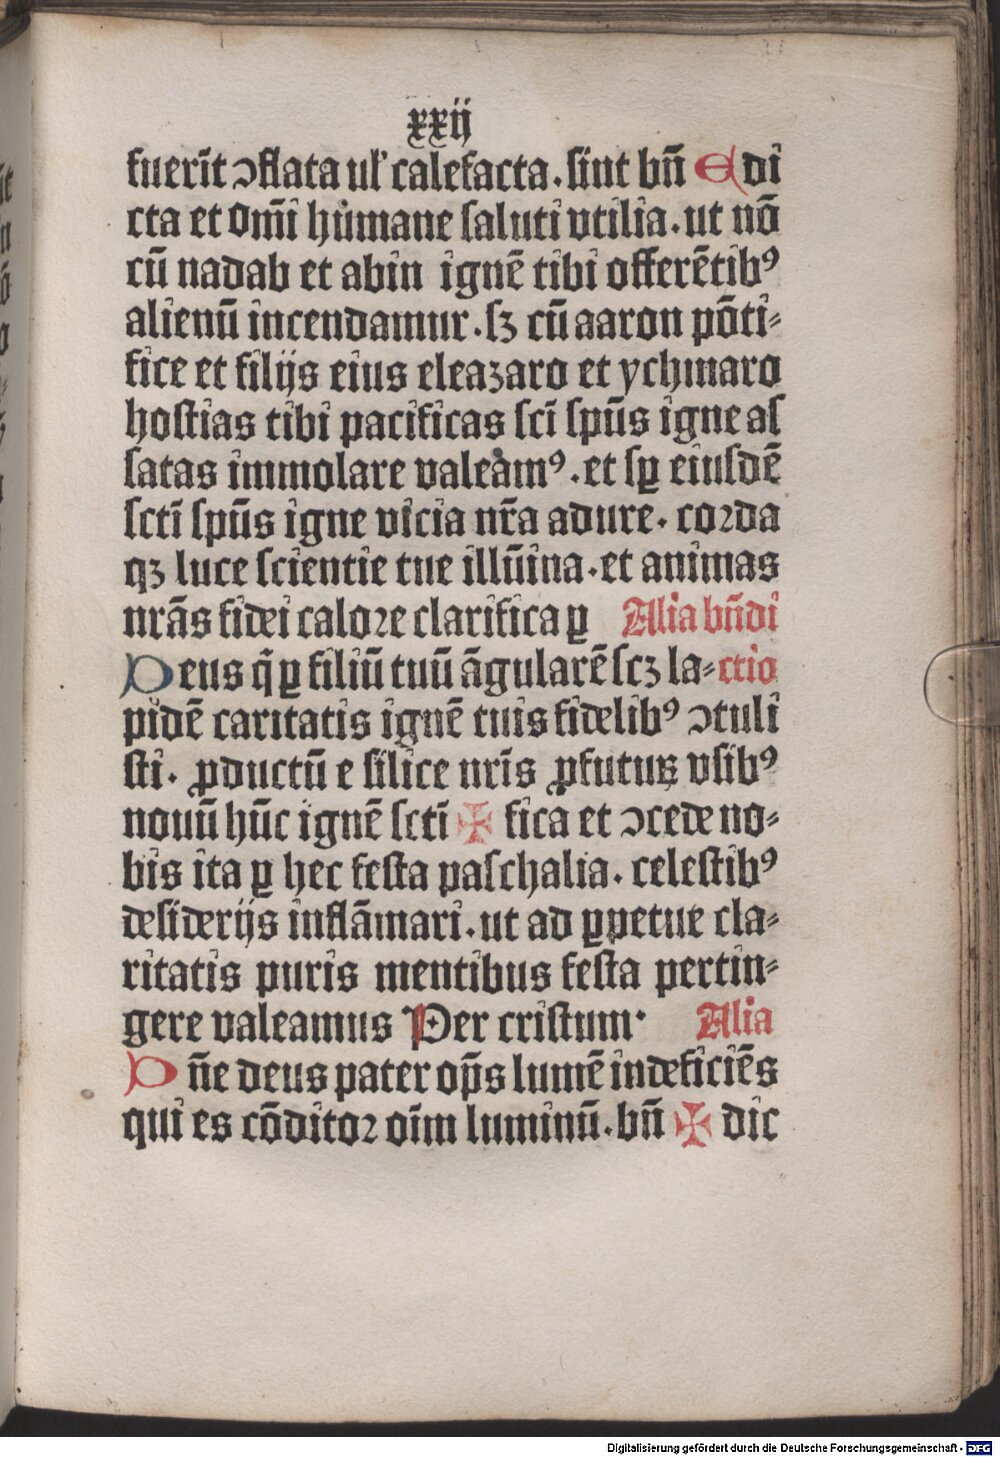 xxij
fuerīt ↄflata ul᷑ calefacta. sint bn̄ ✠ di
cta et om̄i humane saluti vtilia. ut nō
cū nadab et abiu ignē tibi offerētibꝰ
alienū incendamur. sꝫ cū aaron pōti⸗
fice et filijs eius eleazaro et ychmaro
hostias tibi pacificas sci̅ spūs igne as
satas immolare valeamꝰ. et sꝑ eiusdē
sctī spūs igne vicia nr̄a adure. corda
qꝫ luce scientie tue illūina. et animas
nrās fidei calore clarifica ꝑ Alia bn̄di
Deus q̄ ꝑ filiū tuū āgularē scꝫ la⸗ctio
pidē caritatis ignē tuis fidelibꝰ ↄtuli
sti. ꝓductū e silice nrīs ꝓfuturꝫ vsibꝰ
nouū hūc ignē sctī ✠ fica et ↄcede no⸗
bis ita ꝑ hec festa paschalia. celestibꝰ
desiderijs inflāmari. ut ad ꝑpetue cla⸗
ritatis puris mentibus festa pertin⸗
gere valeamus Per cristum· Alia
Dn̄e deus pater op̄s lumē indeficiēs
qui es cōditor oīm luminū. bn̄ ✠ dic
Digitalisierung gefördert durch die Deutsche Forschungsgemeinschaft - DFG